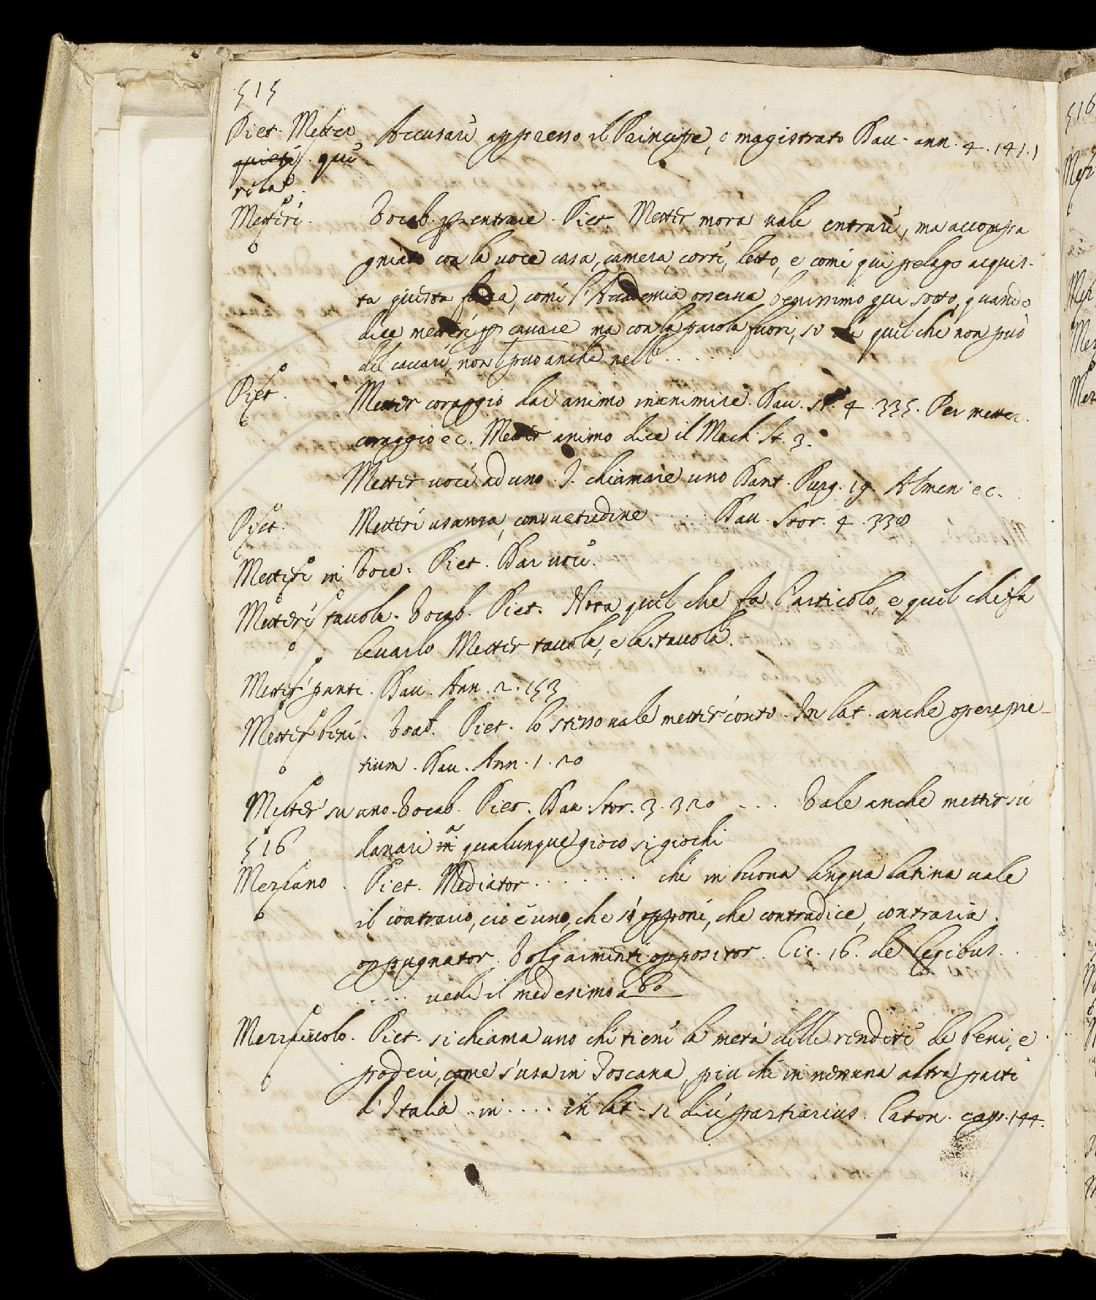 515
Piet. Metter Accusare appresso il Principe, o magistrato Dau. ann. 4. 141.)
querele
Metteri. Vocab. per entrare. Piet. Metter mora vale entrare, ma accompa
gniato con la voce casa, camera, corte, letto, e come qui pelago acquis-
ta questa forza, come l'Accademia osserva benissimo qui sotto, quando
dice metteri per cavare ma con la parola fuori, quel che non può
del cavare, non può anche nell ....
Piet. Metter coraggio dar animo inanimire. Dau. St. 4. 335. Per metter
coraggio ec. Metter animo dice il Mach. St. 3.
Metter voce ad uno. I. chiamare uno Dant. Purg. 19 Almen ec.
Piet. Metteri usanza, consuetudine .... Dau. Stor. 4. 338
Mettersi in Voce. Piet. Dar voce.
Metteri tavola. Vocab. Piet. Nota quel che fa l'articolo, e quel che fa
levarlo Metter tavola, e la tavola.
Metter Dau. Ann. 2. 153
Metter beni. Vocab. Piet. lo stesso vale metter conto. In lat. anche opere pre-
tium. Dau. Ann. 1. 20
Metter su uno. Vocab. Piet. Dau. Stor. 3. 320 ... Vale anche metter su
516 danari in qualunque gioco si giochi
Mezzano. Piet. Mediator ........ che in buona lingua latina vale
il contrario, cioè uno, che si opponi, che contradice, contraria.
oppugnator. Volgarmente oppositor. Cic. 16. de legibus ..
..... vedi il medesimo
Mezzaiuolo. Piet. si chiama uno che tieni la metà delle rendite de beni, e
poderi, come s'usa in Toscana, più che in nessuna altra parte
d'Italia. in .... in lat. si dice partiarius. Caton. cap. 144.
516